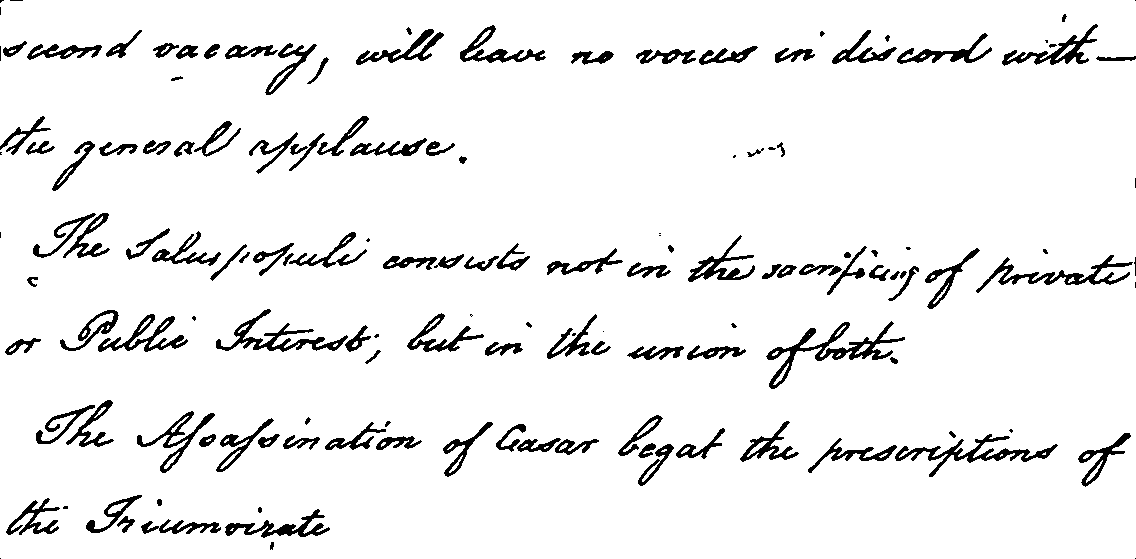 second vacancy, will leave no voices in discord with—
the general applause.
The Saluspopuli consists not in the sacrificing of private
or Public Interest; but in the union of both.
The Aſsaſsination of Casar begat the prescriptions of
the Triumvirate